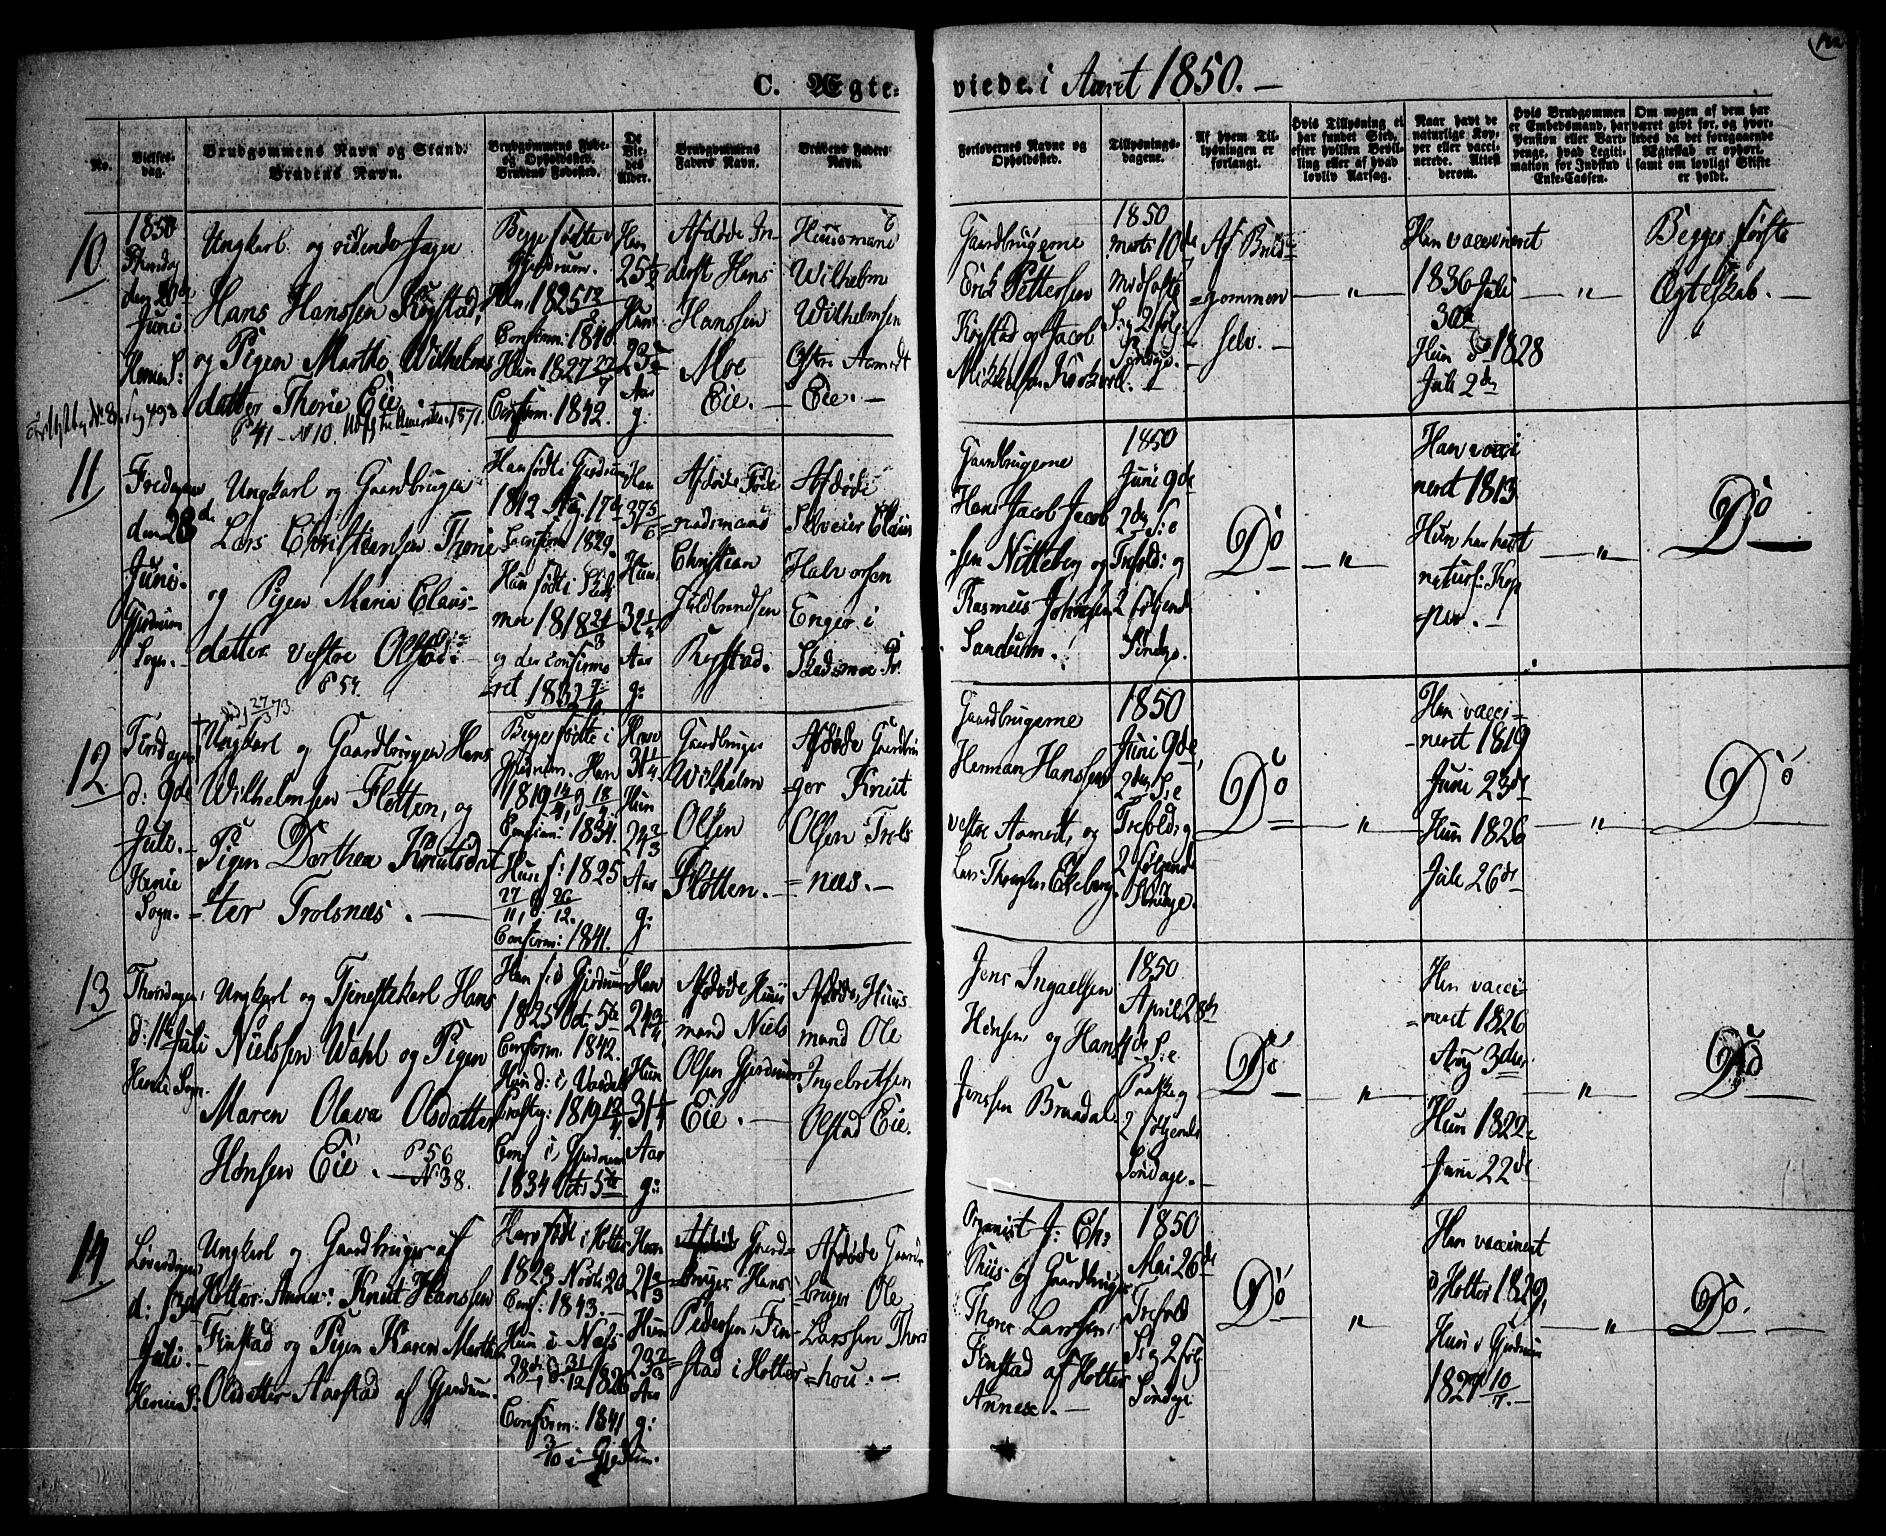 C. Ægte- viede i Aaret 1850.
No.
Vielses-dag.
Brudgommens Navn og Stand.
Brudens Navn.
Brudgommens Føde-
og Opholdssted.
Brudens Fødested.
De
Vie-
des
Alder.
Brudgommens
Faders Navn.
Brudens Faders
Navn.
Forlovernes Navne og
Opholdssted.
Tillysnings-
dagene.
Af hvem Til-
lysningen er
forlangt.
Hvis Tillysning ei
har fundet Sted,
efter hvilken Bevil-
ling eller af hvad
lovlig Aarsag.
Naar havt de
naturlige Kop-
per eller vacci-
nerede. Attest
derom.
Hvis Brudgommen
er Embedsmand, har
Pension eller Vart-
penge, hvad Legiti-
mation for Indskud i
Enke-Cassen.
Om nogen af dem har
været gift før, og hvor-
ledes da det foregaaende
Ægteskab er ophørt.
samt om lovligt Skifte
er holdt.
10
1850
den 20de
Juni
Ungkarl og ridende Jæger
Hans Hanssen Kogstad,
og Pigen Marthe Wilhelms
datter Thorie Eie
P 41 - N 10.
Begge fødte i
Gjerdrum.
Han 1825 12/2
Confirm: 1840
Hun 1827 22/7
Confirm: 1842.
Han
25 1/2
Hun
23
Aar
g.
Afdøde In-
derst Hans
Hanssen
Moe
Eie. —
Huusmand
Wilhelm
Wilhelmsen
Østre Aamodt
Eie. —
Gaardbrugerne
Erik Pettersen
Kogstad og Jacob
Mikkelsen
1850
Marts 10de
Midfaste
S: og 2 følg:
Søndage.
Af Brud-
=gommen
selv. —
— " —
Han vaccineret
1836 Juli
30te
Hun 1828
Juli 2den
— " —
Begges første
Ægteskab. —
11
Fredagen
den 28d
Juni.
Gjerdrum
Sogn. —
Ungkarl og Gaardbruger
Lars Christiansen Thorie
og Pigen Maria Claus-
datter vestre Olstad.
P 54.
Han fødte Gjerdrum
1812 Aug 17de
Confirm 1829.
Hun født i Skeds
moe 1818 24/3
og der confirme
=ret 1832
Han
37 5/6
Hun
32 1/4
Aar
g:
Afdøde Føde
=raadsmand
Christian
Guldbrandsen
Kogstad.
Afdøde
Selveier Claus
Halvorsen
Enger i
Skedsmoe Pr.
Gaardbrugerne
Hans Jacob Jacob
=sen Nitteberg og
Rasmus Johnsen
Sandum.
1850
Juni 9de
2den S: e
Trefold: og
2 følgende
Søndge.
Do
— " —
Han vacci
neret 1813
Hun har havt
naturl: Kop
per. —
— " —
Do
12
Tirsdagen
d: 9de
Juli. —
Henie
Sogn. —
død 27/3 73
Ungkarl og Gaardbruger Hans
Wilhelmsen Fløtten, og
Pigen Dorthea Knutsdat
=ter Trolsnæs. —
Begge fødte i
Gjerdrum. Han
1819
Confirm: 1834.
Hun f: 1825
27/11, d. 26/12.
Confirm: 1841.
Han
31 1/4
Hun
24 2/3
Aar
g:
Gaardbruger
Wilhelm
Olsen
Fløtten. —
Afdøde Gaardbru
=ger Knut
Olsen Trols
=næs. —
Gaardbrugerne
Herman Hanssen
vestre Aamott, og
Lars Thoresen Ekeberg.
1850
Juni 9de,
2den S: e
Trefold: og
2 følgende
Søndge.
Do
— " —
Han vacci-
neret 1819
Juni 23de
Hun 1826
Juli 26de
— " —
Do
13
Thorsdagen,
d: 11te Juli
Henie Sogn.
Ungkarl og Tjenestekarl Hans
Nielssen Wahl og Pigen
Maren Olava Olsdatter
Hønsen Eie. — P 56
N 38.
Han f. i Gjerdrum
1825 Oct. 5te
Confirm. 1842.
Hun d: i Vardal
1819
Conf i Gjerdrum
1834 Octs 5te
Han
24 3/4
Hun
31 1/4
Aar
g:
Afdøde Huus
mand Niels
Olsen Gjerdrum
Eie. —
Afdøde Huus
mand Ole
Ingebretsen
Olstad Eie.
Jens Ingaelsen
Hønsen og Hans
Jenssen Braadal.
1850
April 28de
4de S: e
Paaske og
2 følgende
Søndage. —
Do
— " —
Han vacci-
=neret 1826
Aug 3die
Hun 1822
Juni 22de
— " —
Do
14.
Løverdagen
d: 13de
Juli. —
Henie S:
Ungkarl og Gaardbruger af
Holter Annex: Knut Hanssen
Finstad og Pigen Karen Marthea
Olsdatter Aarstad af Gjerdrum.
Han født i Holter
1828 Novbr 20
Conf: 1843. —
Hun i Næs
28de d. 31/12 1826
Confirm: 1841
3/10 i Gjerdrum.
Han
21 2/3
Hun
23
Aar
g:
Gaard=
=bruger Hans
Pedersen, Fin=
=stad i Holter
Afdøde Gaard
=bruger Ole
Larssen Thors
=hou: —
Organist J: Ch:
og Gaardbruger
Thorer Larssen,
Finstad af Holter
Annex. —
1850
Mai 26de
Trefold
S: og 2 følg
Søndage
Do
"
Han vaccineret
i Holter 1829,
Hun i Gjerdrum
1827 10/7. —
— " —
Do.